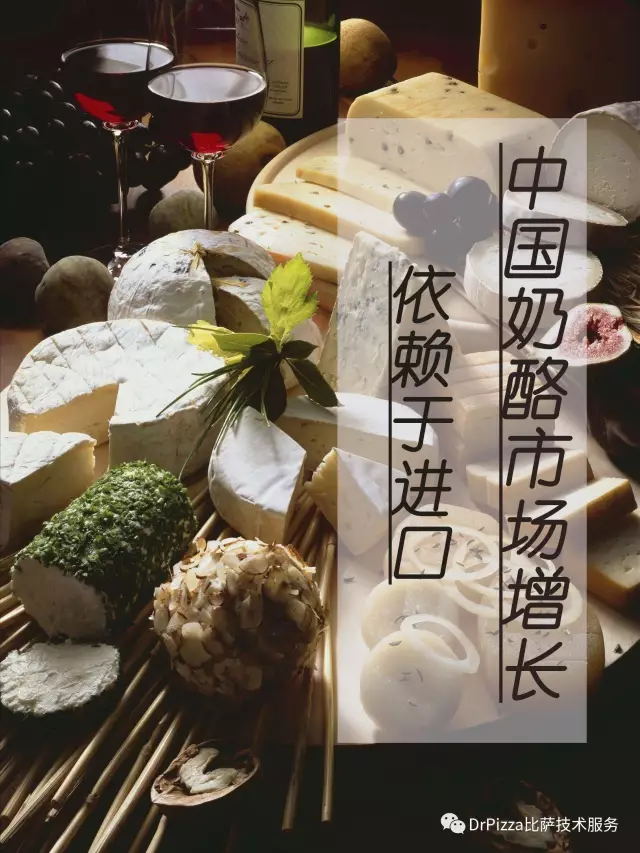 中国奶酪市场增长
依赖于进口
DrPizza比萨技术服务